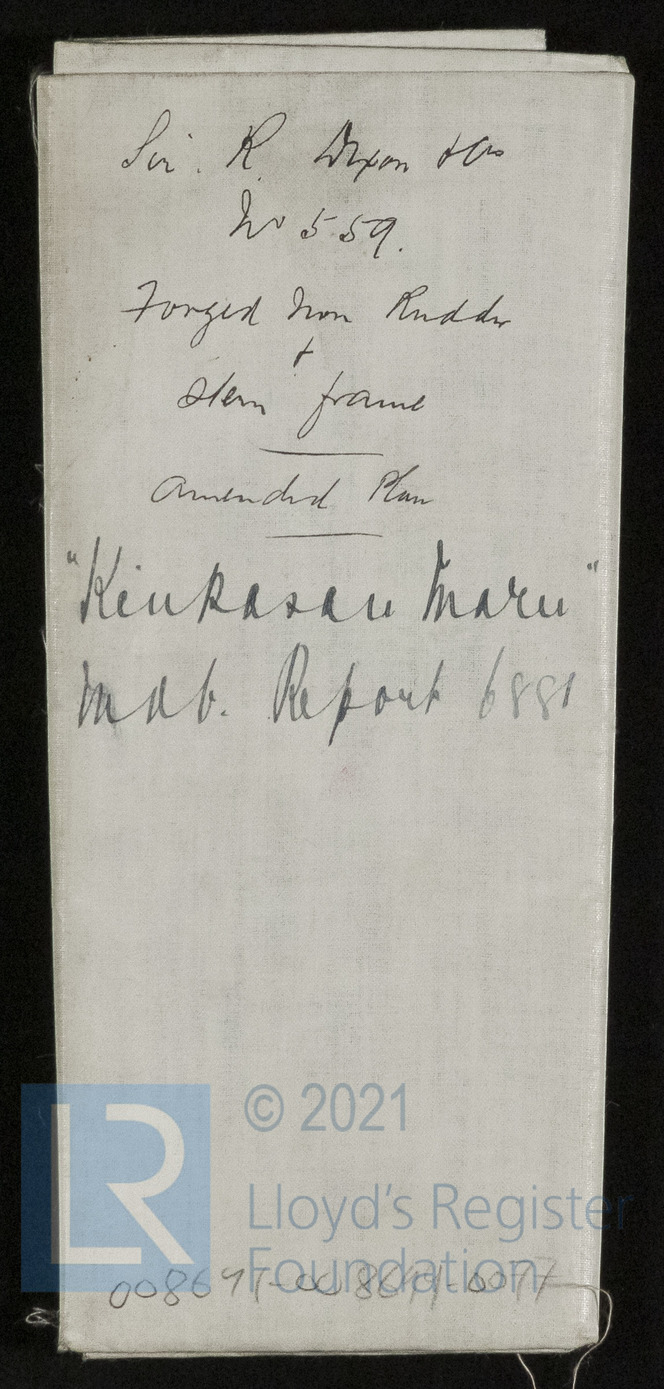 Sir. R. Dixon & Co
No 559.
Forged Iron Rudder
&
Stern frame
Amended Plan
"Kinkasan Maru"
Mdb. Report 6881
© 2021
LR
Lloyd's Register
Foundation